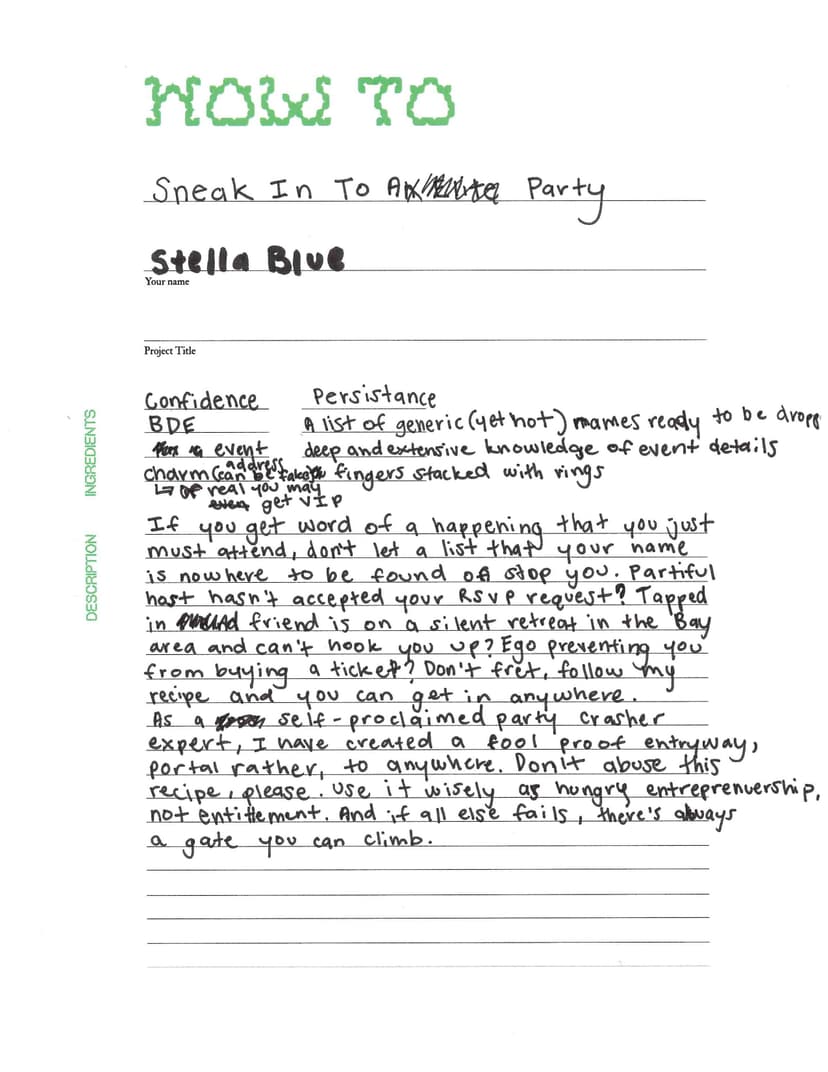 HOW TO
Sneak In To A Party
Stella Blue
Your name
Project Title
INGREDIENTS
Confidence Persistance
BDE A list of generic (yet hot) names ready to be dropp
event address deep and extensive knowledge of event details
charm (can be fake) fingers stacked with rings
↳ if real you may
even get VIP
DESCRIPTION
If you get word of a happening that you just
must attend, don't let a list that your name
is nowhere to be found on stop you. Partiful
host hasn't accepted your RSVP request? Tapped
in friend is on a silent retreat in the Bay
area and can't hook you up? Ego preventing you
from buying a ticket? Don't fret, follow my
recipe and you can get in anywhere.
As a self-proclaimed party crasher
expert, I have created a fool proof entryway,
portal rather, to anywhere. Don't abuse this
recipe, please. Use it wisely as hungry entreprenuership,
not entitlement. And if all else fails, there's always
a gate you can climb.